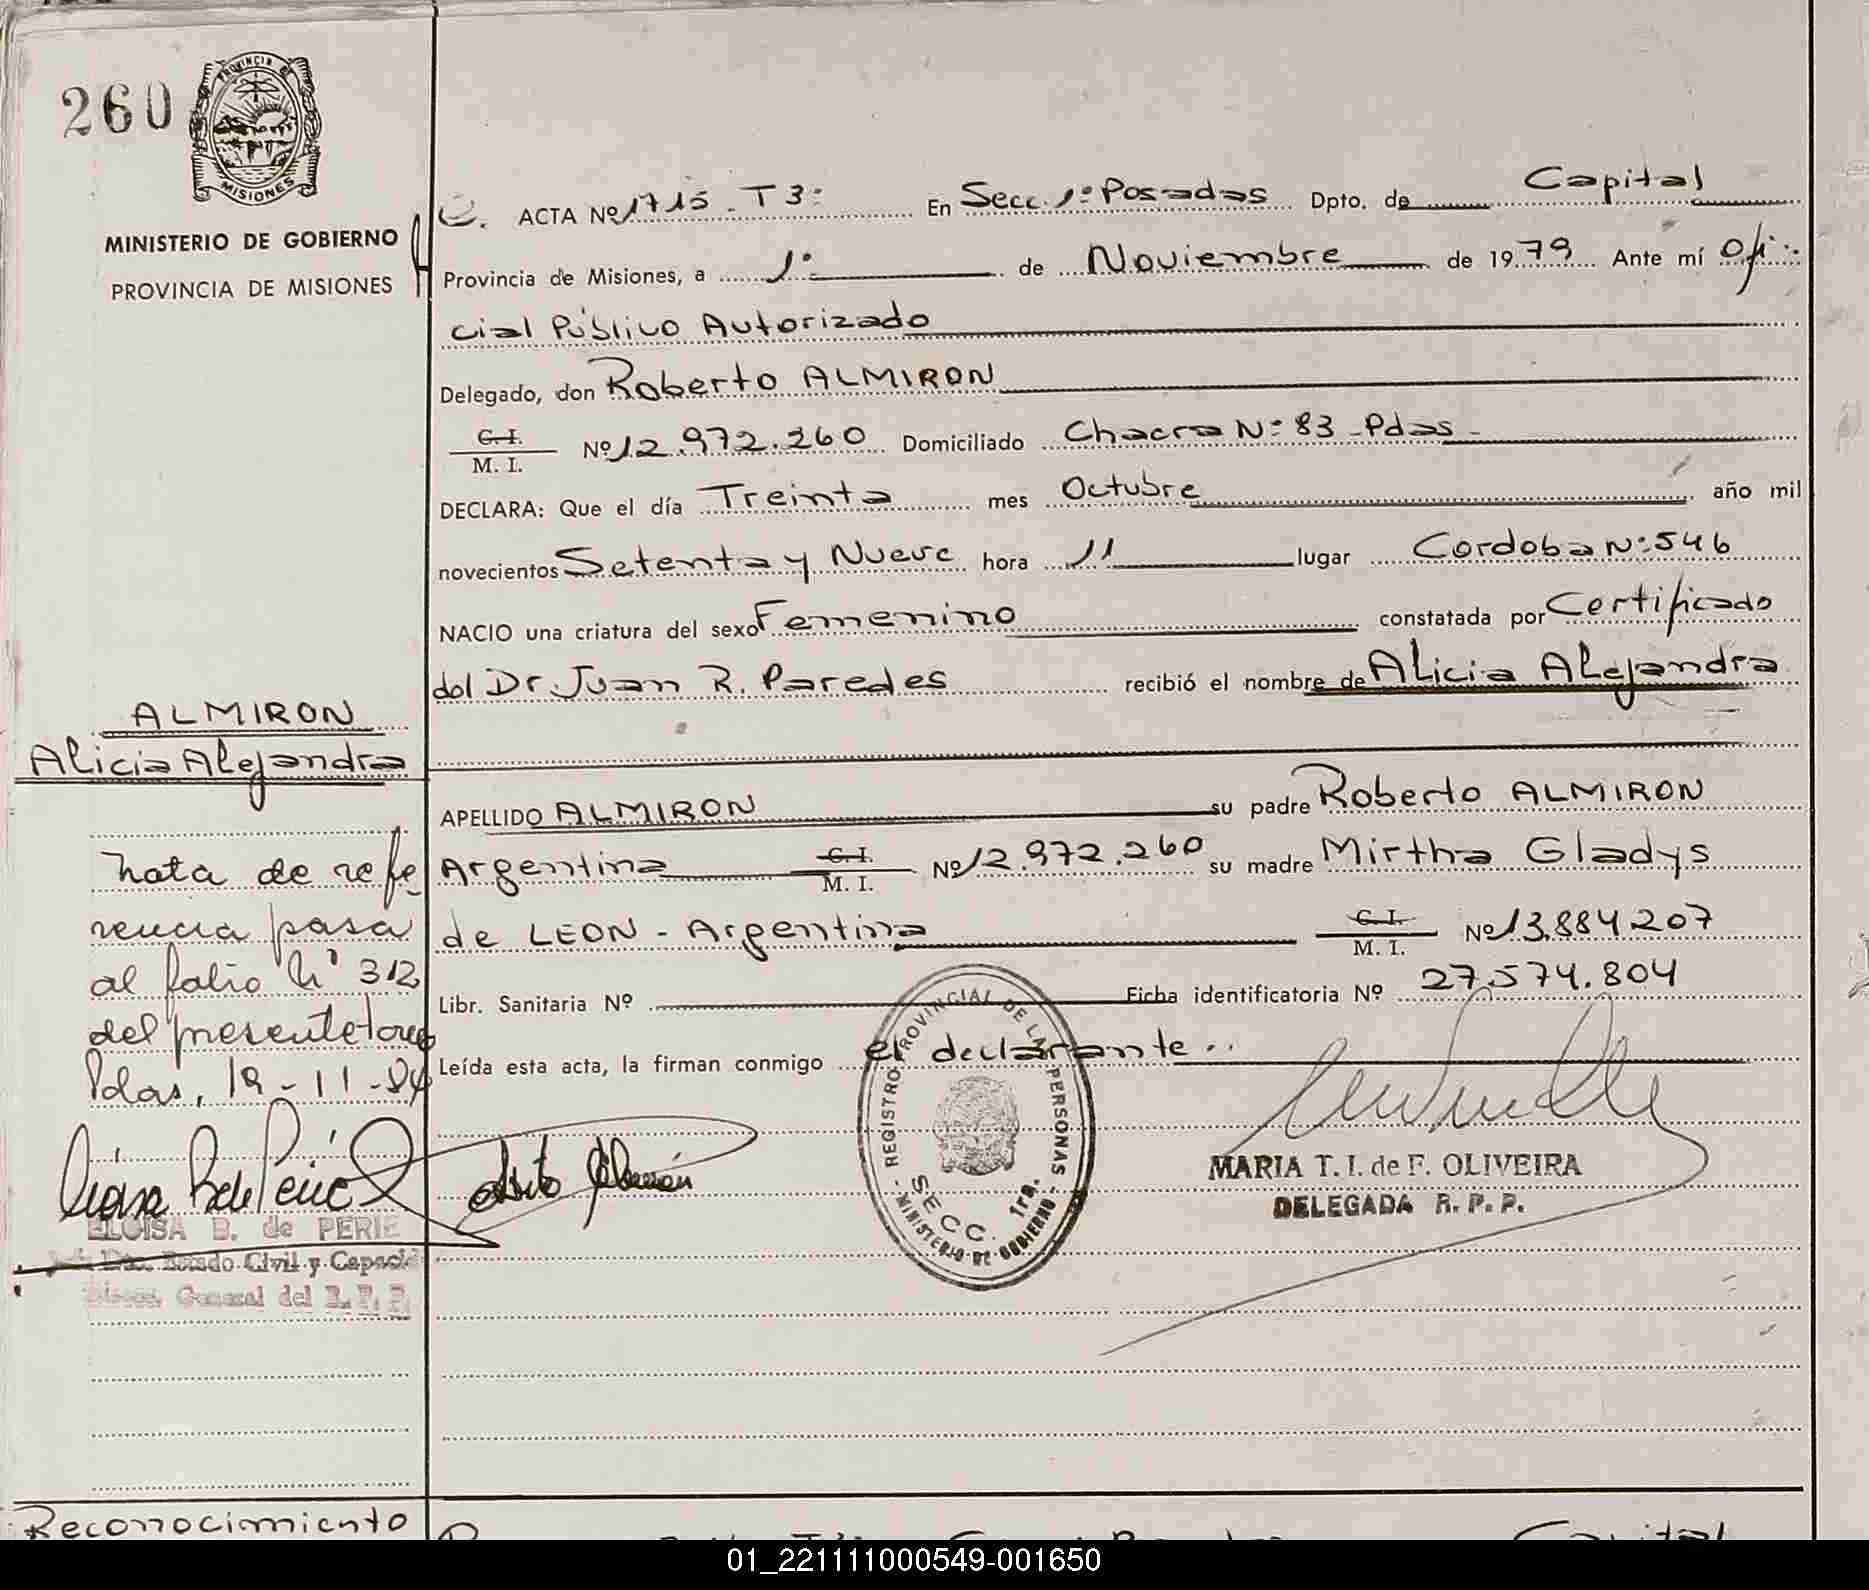 260
PROVINCIA DE
MISIONES
MINISTERIO DE GOBIERNO
PROVINCIA DE MISIONES
ACTA Nº 1715 - T 3º En Secc. 1º Posadas Dpto. de Capital
Provincia de Misiones, a 1º de Noviembre de 1979 Ante mí Ofi-
cial Público Autorizado
Delegado, don Roberto ALMIRON
C. I.
M. I. Nº 12.972.260 Domiciliado Chacra Nº 83 - Pdas -
DECLARA: Que el día Treinta mes Octubre año mil
novecientos Setenta y Nueve hora 11 lugar Cordoba Nº 546
NACIO una criatura del sexo Femenino constatada por Certificado
del Dr. Juan R. Paredes recibió el nombre de Alicia Alejandra
ALMIRON
Alicia Alejandra
APELLIDO ALMIRON su padre Roberto ALMIRON
Argentina C. I. M. I. Nº 12.972.260 su madre Mirtha Gladys
de LEON - Argentina C. I. M. I. Nº 13.884207
Libr. Sanitaria Nº Ficha identificatoria Nº 27.574.804
Leída esta acta, la firman conmigo el declarante..
nota de refe
rencia pasa
al folio Nº 312
del presente tomo
Pdas, 19-11-84
ELOISA B. de PERIE
Estado Civil y Capacid
General del R. P. P.
REGISTRO PROVINCIAL DE LAS PERSONAS
SECC. 1ra.
- MINISTERIO DE GOBIERNO -
MARIA T. I. de F. OLIVEIRA
DELEGADA R. P. P.
Reconocimiento
Capital
01_221111000549-001650